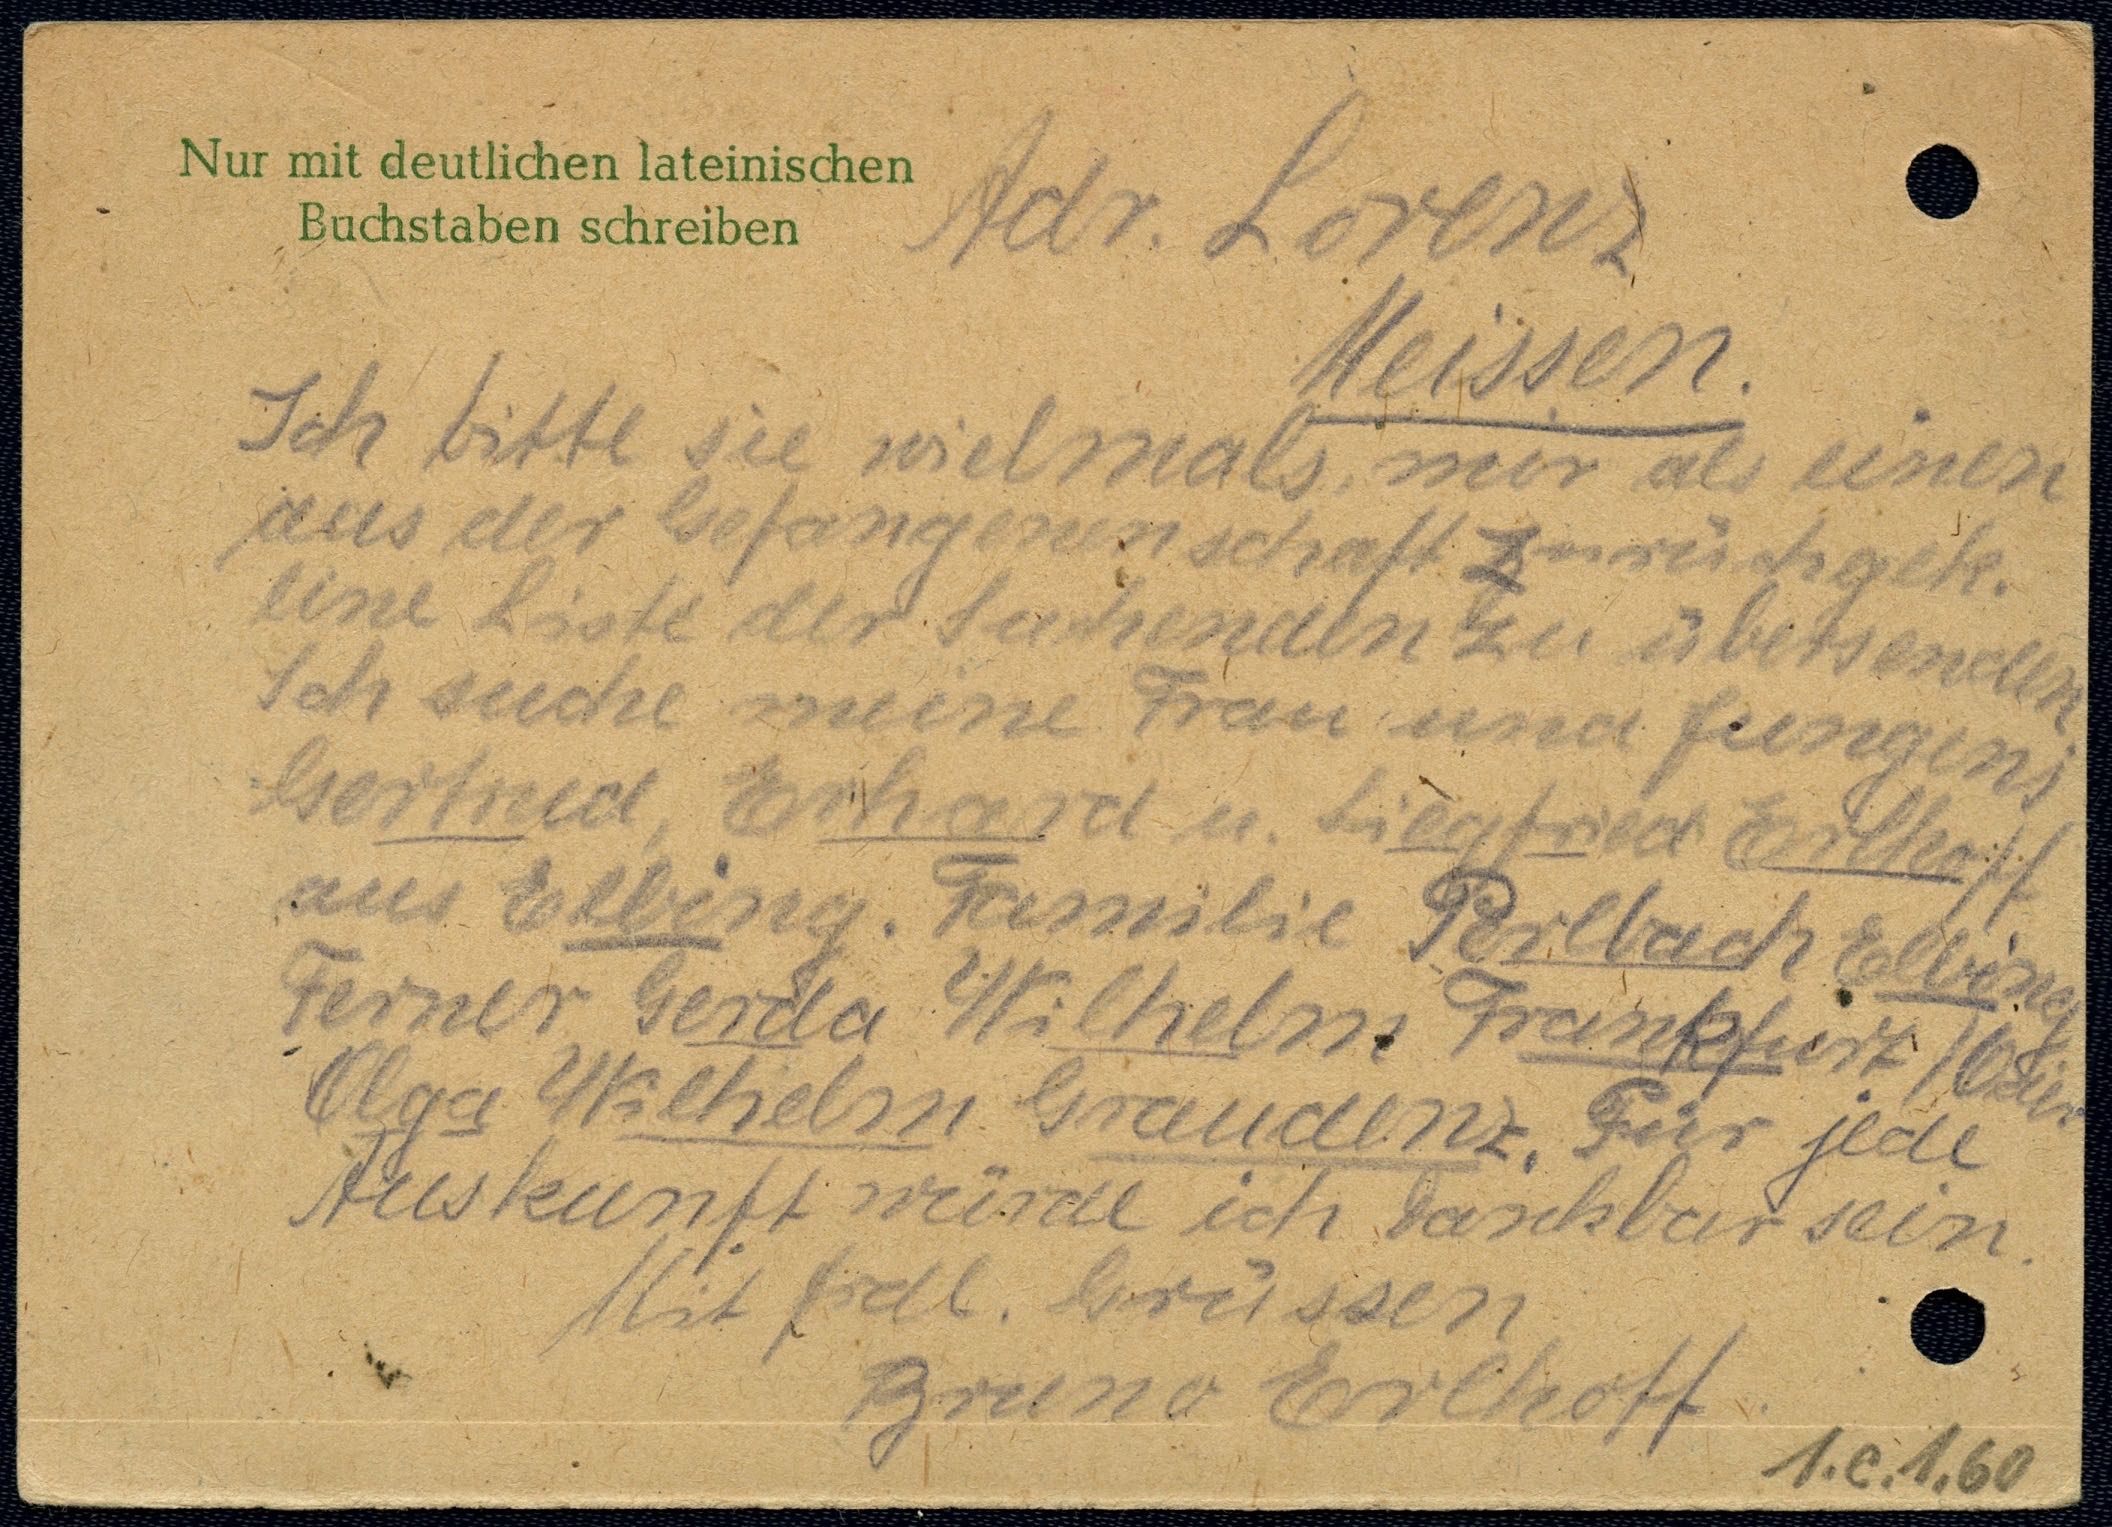 Nur mit deutlichen lateinischen
Buchstaben schreiben
Adr. Lorenz
Meissen.
Ich bitte sie vielmals, mir als einen
aus der Gefangenenschaft zurückgek.
eine Liste der Suchenden zu übersenden
Ich suche meine Frau und Jungens
Gertrud, Erhard u. Siegfried Erlhoff
aus Elbing. Familie Perlbach Elbing
Ferner Gerda Wilhelm Frankfurt/Oder
Olga Wilhelm Graudenz. Für jede
Auskunft würde ich dankbar sein.
Mit frdl. Grüssen
Bruno Erlhoff.
1.c.1.60